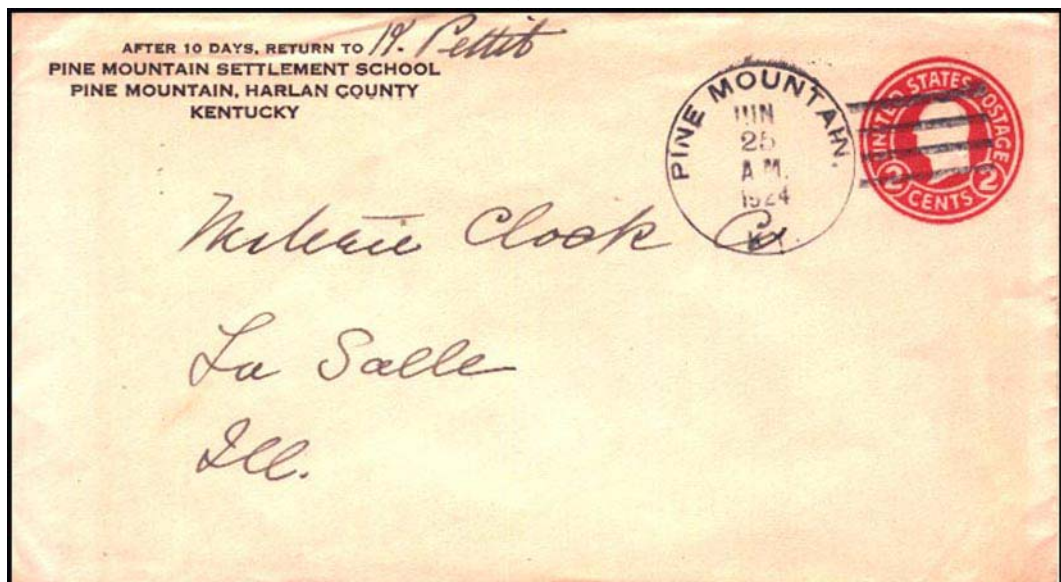 AFTER 10 DAYS, RETURN TO Pettit
PINE MOUNTAIN SETTLEMENT SCHOOL
PINE MOUNTAIN, HARLAN COUNTY
KENTUCKY
PINE MOUNTAIN,
JUN
25
A.M.
1924
KY.
UNITED STATES POSTAGE
2 CENTS 2
Clock Co
La Salle
Ill.